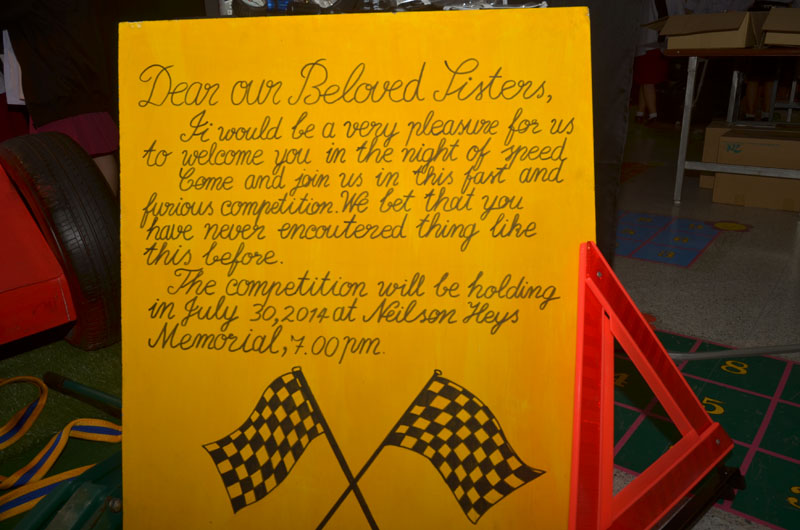 Dear our Beloved Sisters,
It would be a very pleasure for us
to welcome you in the night of speed
Come and join us in this fast and
furious competition. We bet that you
have never encoutered thing like
this before.
The competition will be holding
in July 30, 2014 at Neilson Heys
Memorial, 7.00 pm.
8
5